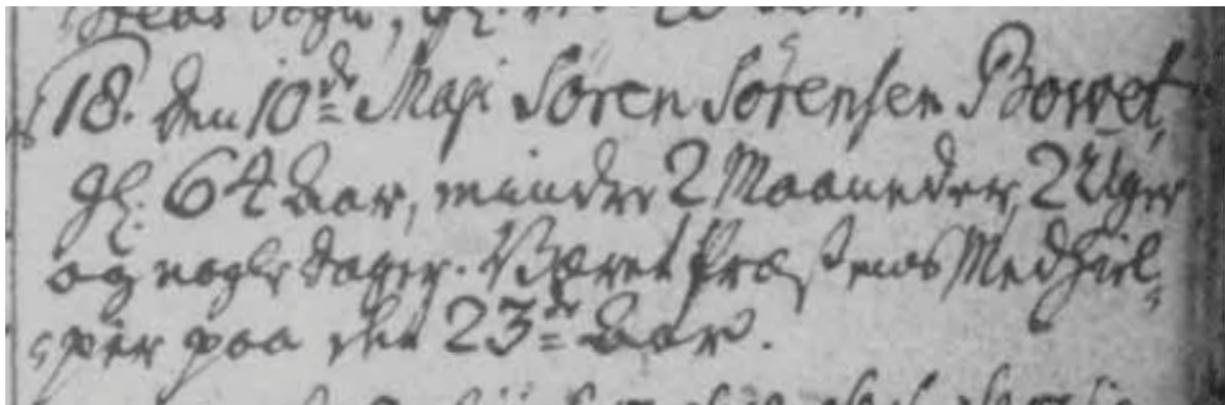 18. den 10de Maji Sören Sörensen Bowet,
gl. 64 Aar, minder 2 Maaneder, 2 Uger
og nogle Dager. Været Præstens Medhiel-
per paa det 23de Aar.